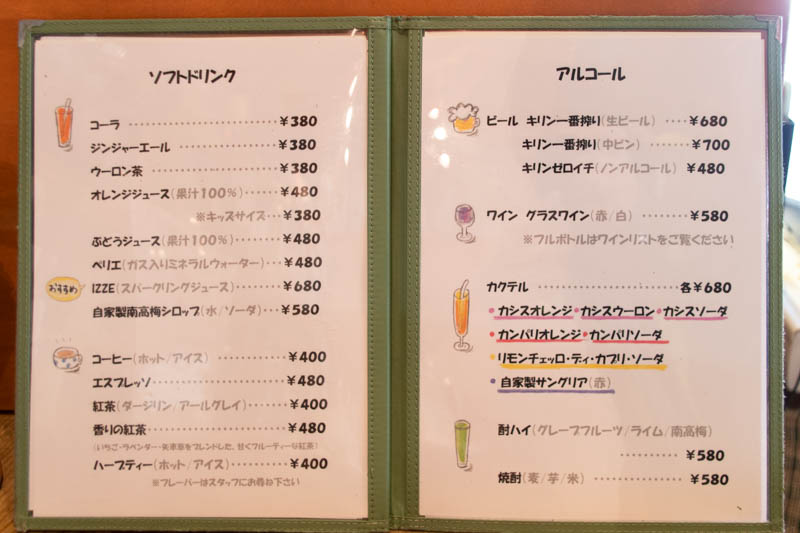 ソフトドリンク
コーラ ・・・・・・・・・・・・ ¥380
ジンジャーエール ・・・・・・・・ ¥380
ウーロン茶 ・・・・・・・・・・・ ¥380
オレンジジュース(果汁100%)・・・・・ ¥480
※キッズサイズ・・・ ¥380
ぶどうジュース(果汁100%)・・・・・・ ¥480
ペリエ(ガス入りミネラルウォーター)・・・ ¥480
おすすめ IZZE(スパークリングジュース)・・・・・ ¥680
自家製南高梅シロップ(水/ソーダ)・・・・ ¥580
コーヒー(ホット/アイス) ・・・・・・・ ¥400
エスプレッソ ・・・・・・・・・・・ ¥480
紅茶(ダージリン/アールグレイ)・・・・・ ¥400
香りの紅茶・・・・・・・・・・・・ ¥480
(いちご・ラベンダー・矢車草をブレンドした、甘くフルーティーな紅茶)
ハーブティー(ホット/アイス)・・・・・・ ¥400
※フレーバーはスタッフにお尋ね下さい
アルコール
ビール キリン一番搾り(生ビール) ・・・・ ¥680
キリン一番搾り(中ビン) ・・・・・ ¥700
キリンゼロイチ(ノンアルコール) ¥480
ワイン グラスワイン(赤/白) ・・・・・・ ¥580
※フルボトルはワインリストをご覧ください
カクテル ・・・・・・・・・・・・ 各¥680
・カシスオレンジ・カシスウーロン・カシスソーダ
・カンパリオレンジ・カンパリソーダ
・リモンチェッロ・ディ・カプリ・ソーダ
・自家製サングリア(赤)
酎ハイ(グレープフルーツ/ライム/南高梅)
・・・・・・・・ ¥580
焼酎(麦/芋/米) ・・・・・・・・・ ¥580